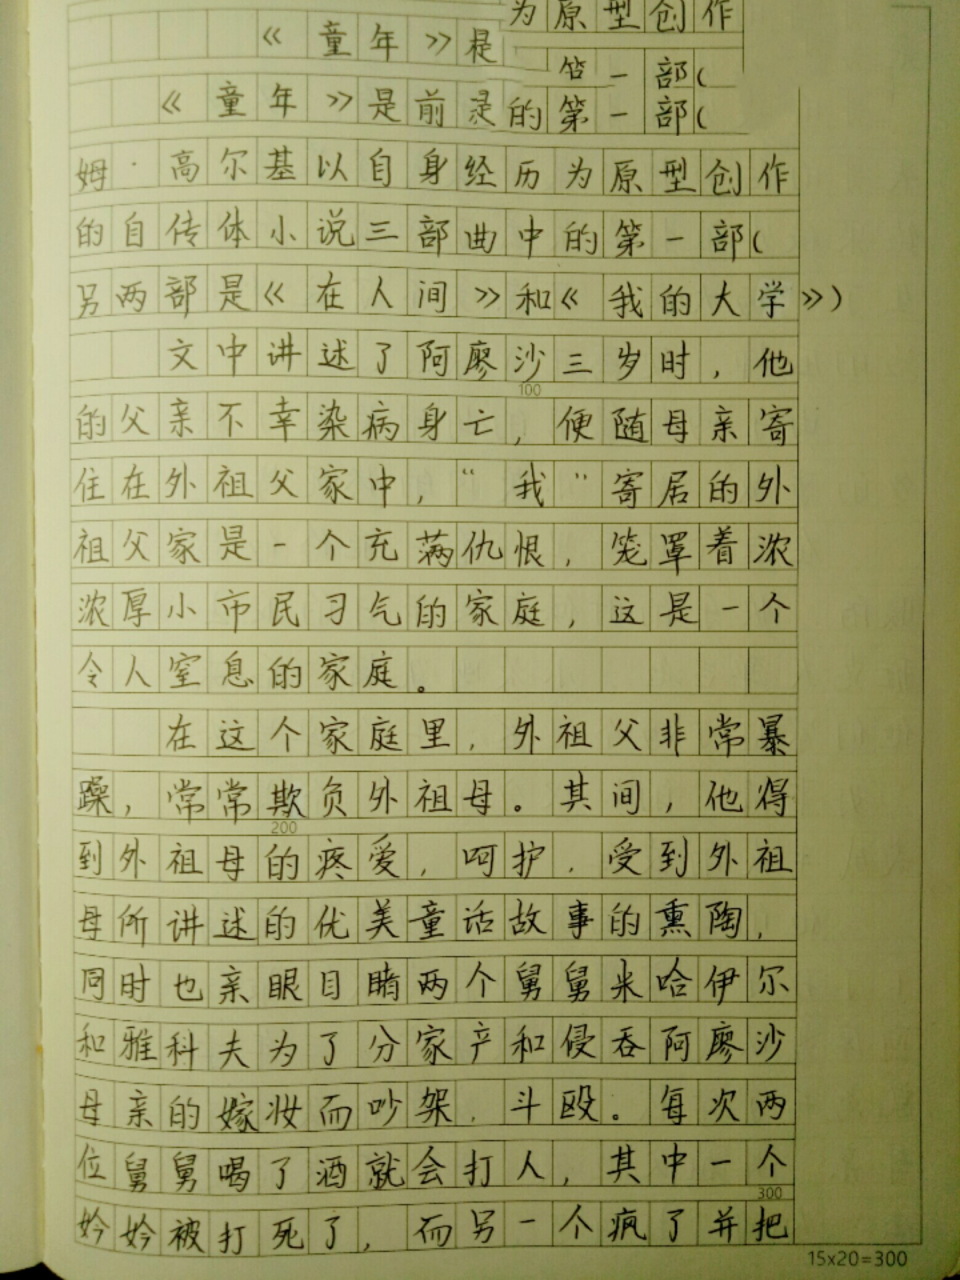 为原型创作
《童年》是
第一部(
《童年》是前灵的第一部(
姆·高尔基以自身经历为原型创作
的自传体小说三部曲中的第一部(
另两部是《在人间》和《我的大学》)
文中讲述了阿廖沙三岁时，他
100
的父亲不幸染病身亡，便随母亲寄
住在外祖父家中，“我”寄居的外
祖父家是一个充满仇恨，笼罩着浓
浓厚小市民习气的家庭，这是一个
令人窒息的家庭。
在这个家庭里，外祖父非常暴
躁，常常欺负外祖母。其间，他得
200
到外祖母的疼爱，呵护，受到外祖
母所讲述的优美童话故事的熏陶，
同时也亲眼目睹两个舅舅米哈伊尔
和雅科夫为了分家产和侵吞阿廖沙
母亲的嫁妆而吵架，斗殴。每次两
位舅舅喝了酒就会打人，其中一个
300
妗妗被打死了，而另一个疯了并把
15x20=300